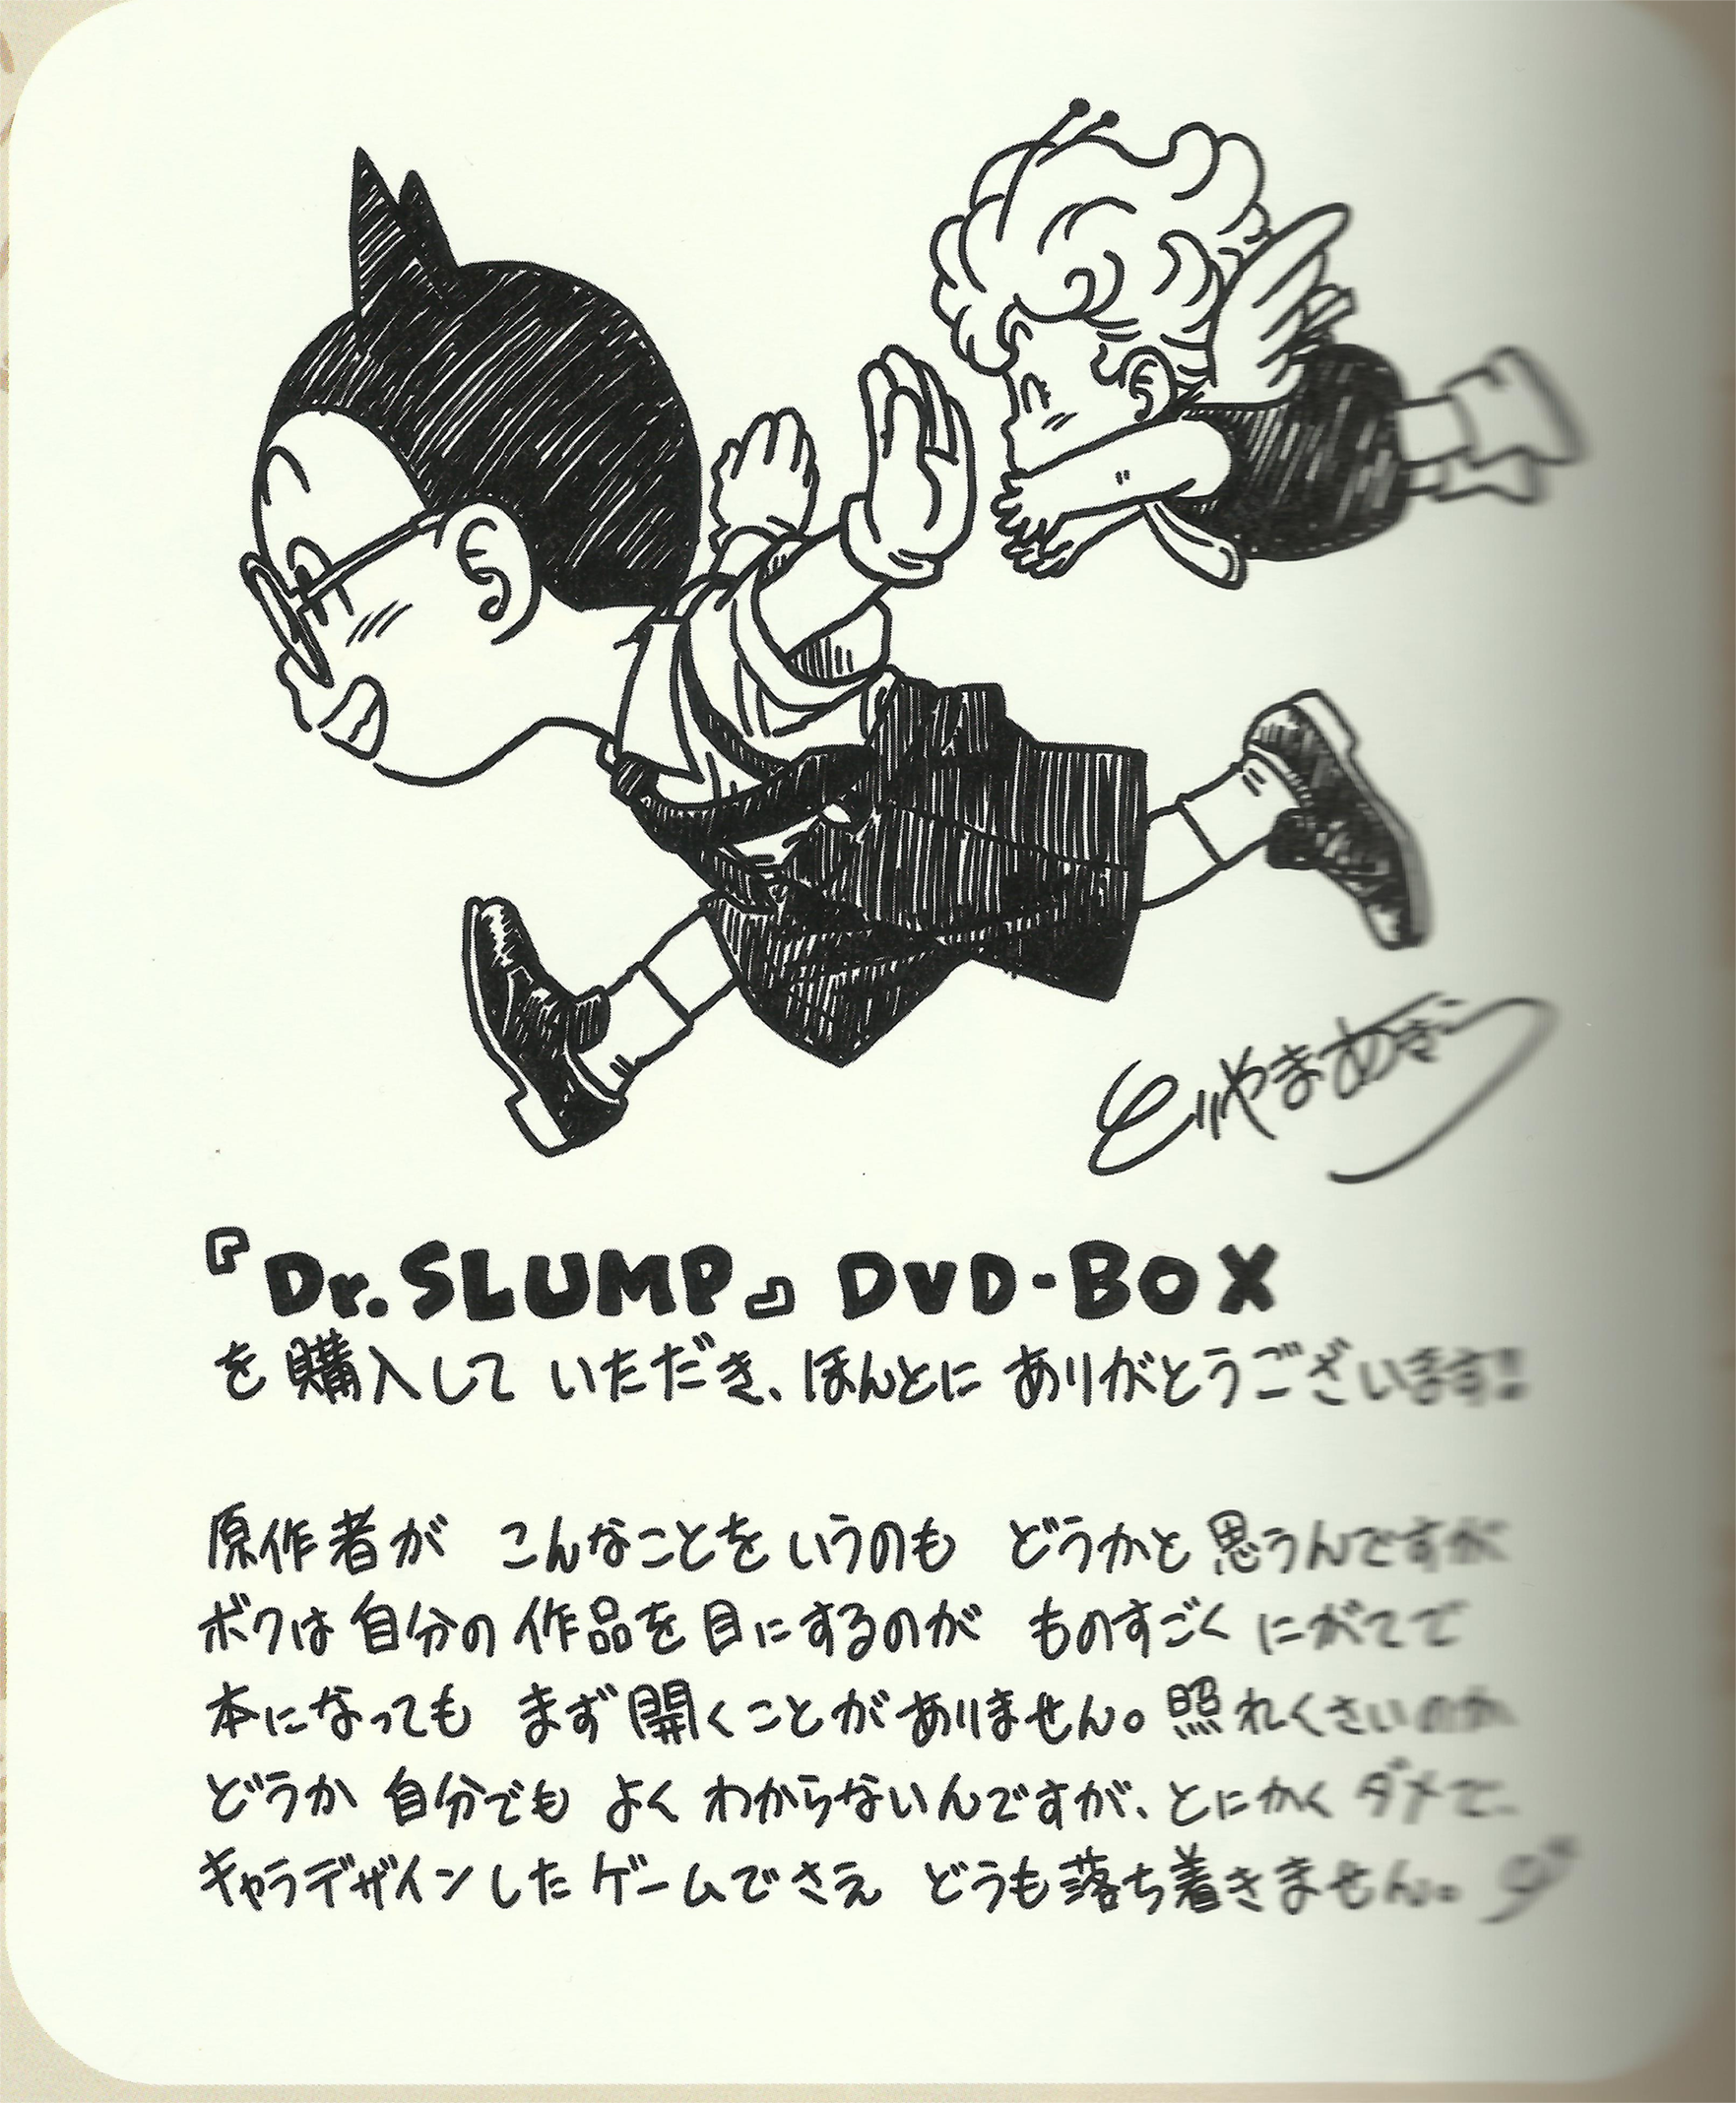 とりやまあきら
『Dr.SLUMP』DVD-BOX
を購入して いただき、ほんとに ありがとうございます!!
原作者が こんなことを いうのも どうかと 思うんですが
ボクは 自分の 作品を 目にするのが ものすごく にがてで
本になっても まず 開くことが ありません。照れくさいのか
どうか 自分でも よく わからないんですが、とにかく ダメで、
キャラデザインした ゲームでさえ どうも 落ち着きません。